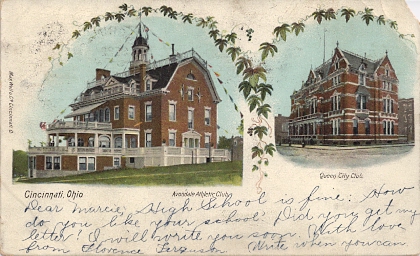 Cincinnati, Ohio
Avondale Athletic Club.
Queen City Club.
Dear Marcia, High School is fine. How
do you like your school? Did you get my
letter? I will write you soon. With love
from Florence Ferguson. Write when you can